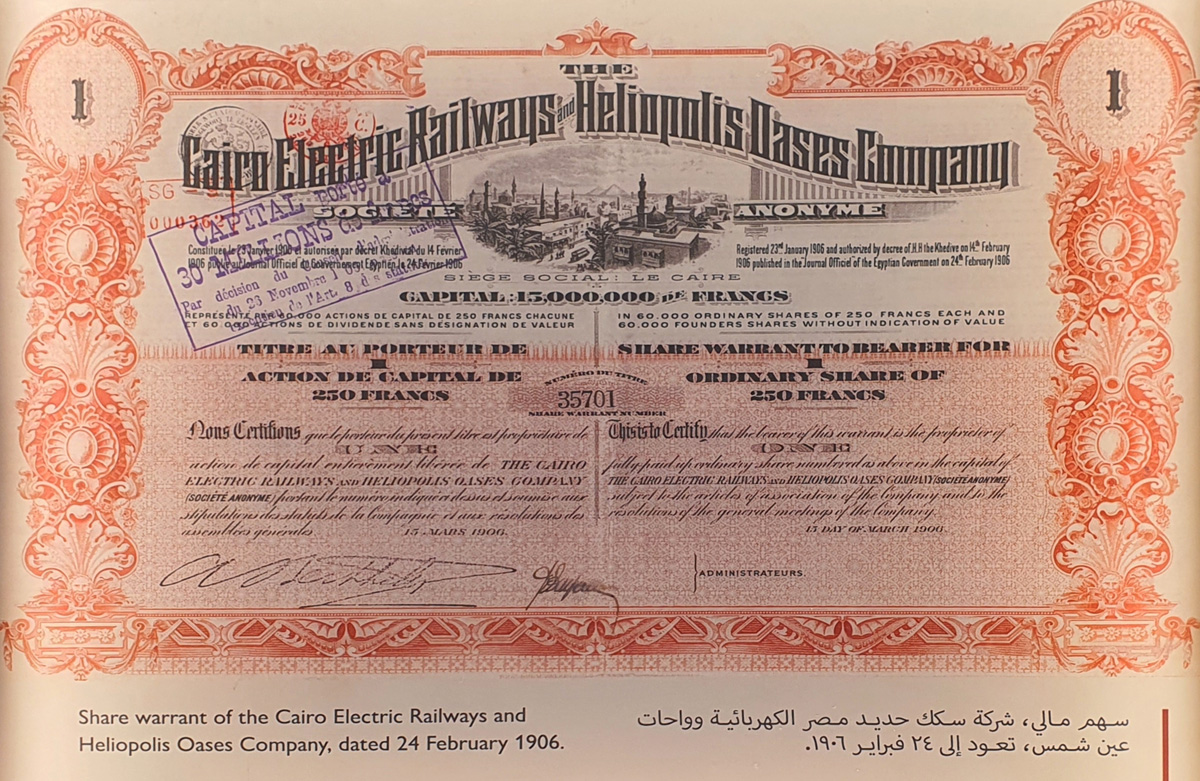 1
1
THE
Cairo Electric Railways and Heliopolis Oases Company
25
C
SG
000362
CAPITAL PORTÉ à
30 MILLIONS de FRANCS
Par décision du
du 26 Novembre
de l'Art. 8 des
SOCIÉTÉ ANONYME
Constituée le 23 Janvier 1906 et autorisée par décret Khédivial du 14 Février
1906 publié au Journal Officiel du Gouvernement Egyptien le 24 Février 1906
Registered 23rd January 1906 and authorized by decree of H.H the Khedive on 14th February
1906 published in the Journal Officiel of the Egyptian Government on 24th February 1906
SIÈGE SOCIAL: LE CAIRE
CAPITAL: 15,000,000 DE FRANCS
REPRÉSENTÉ PAR 60.000 ACTIONS DE CAPITAL DE 250 FRANCS CHACUNE
ET 60.000 ACTIONS DE DIVIDENDE SANS DÉSIGNATION DE VALEUR
IN 60.000 ORDINARY SHARES OF 250 FRANCS EACH AND
60.000 FOUNDERS SHARES WITHOUT INDICATION OF VALUE
TITRE AU PORTEUR DE
1
ACTION DE CAPITAL DE
250 FRANCS
SHARE WARRANT TO BEARER FOR
1
ORDINARY SHARE OF
250 FRANCS
NUMÉRO DU TITRE
35701
SHARE WARRANT NUMBER
Nous Certifions que le porteur du présent titre est propriétaire de
UNE
action de capital entièrement libérée de THE CAIRO
ELECTRIC RAILWAYS AND HELIOPOLIS OASES COMPANY
(SOCIÉTÉ ANONYME) portant le numéro indiqué ci dessus et soumise aux
stipulations des statuts de la Compagnie et aux résolutions des
assemblées générales. 15 MARS 1906.
This is to Certify that the bearer of this warrant is the proprietor of
ONE
fully paid up ordinary share numbered as above in the capital of
THE CAIRO ELECTRIC RAILWAYS AND HELIOPOLIS OASES COMPANY (SOCIÉTÉ ANONYME)
subject to the articles of association of the Company and to the
resolutions of the general meetings of the Company.
15 DAY OF MARCH 1906.
ADMINISTRATEURS.
Share warrant of the Cairo Electric Railways and
Heliopolis Oases Company, dated 24 February 1906.
سهم مالي، شركة سكك حديد مصر الكهربائية وواحات
عين شمس، تعود إلى ٢٤ فبراير ١٩٠٦.